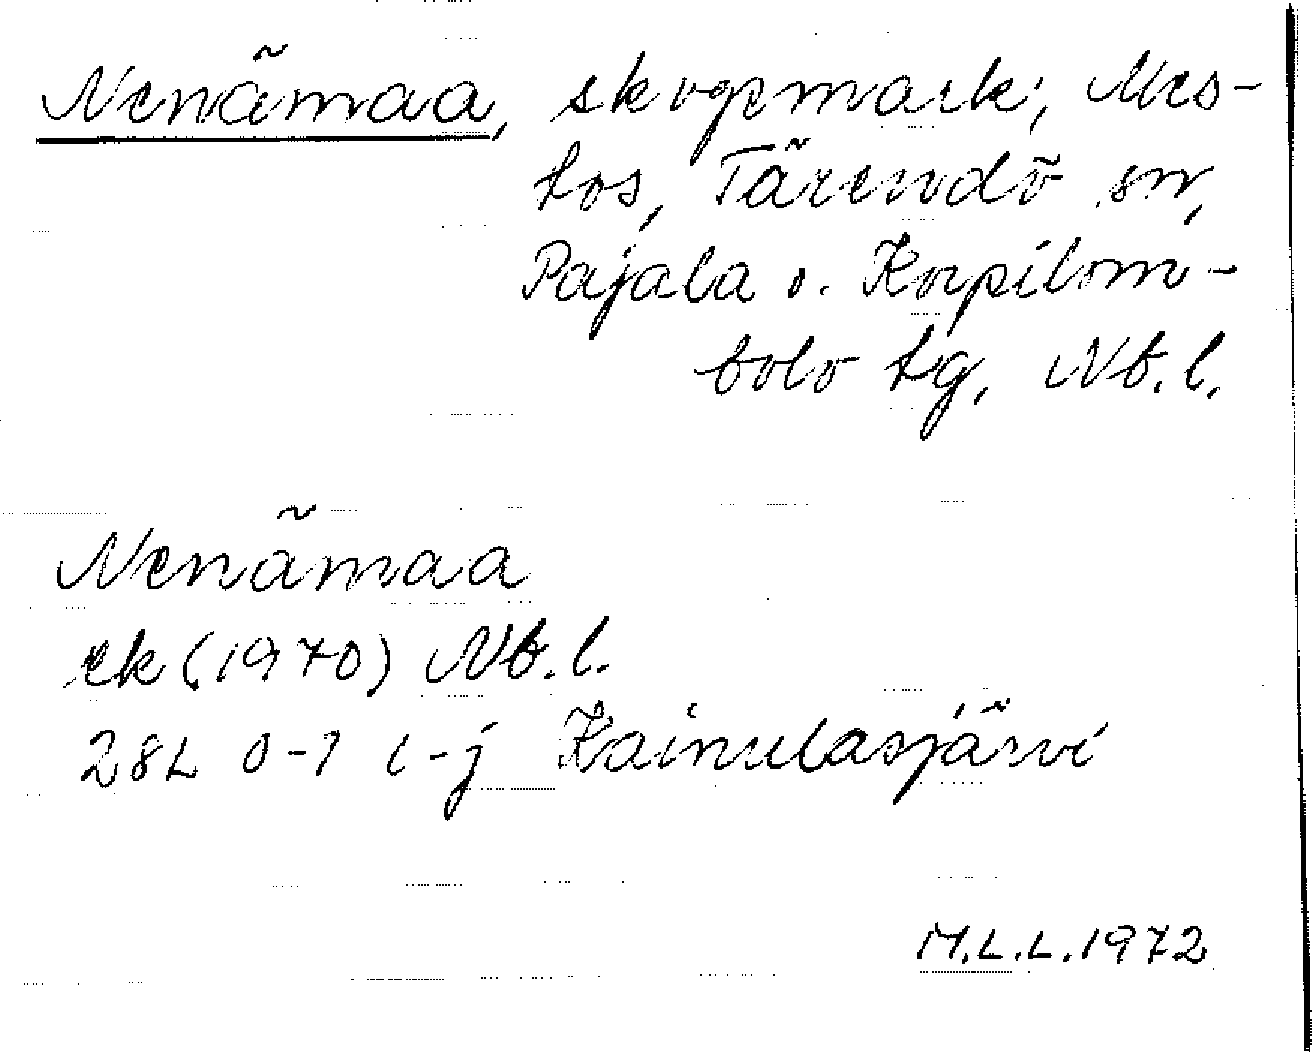 Nenämaa, skogsmark; Mes-
tos, Tärendö sn,
Pajala o. Korpilom-
bolo tg, Nb.l.
Nenämaa
ek (1970) Nb.l.
28L 0-1 i-j Kainulasjärvi
M.L.L.1972